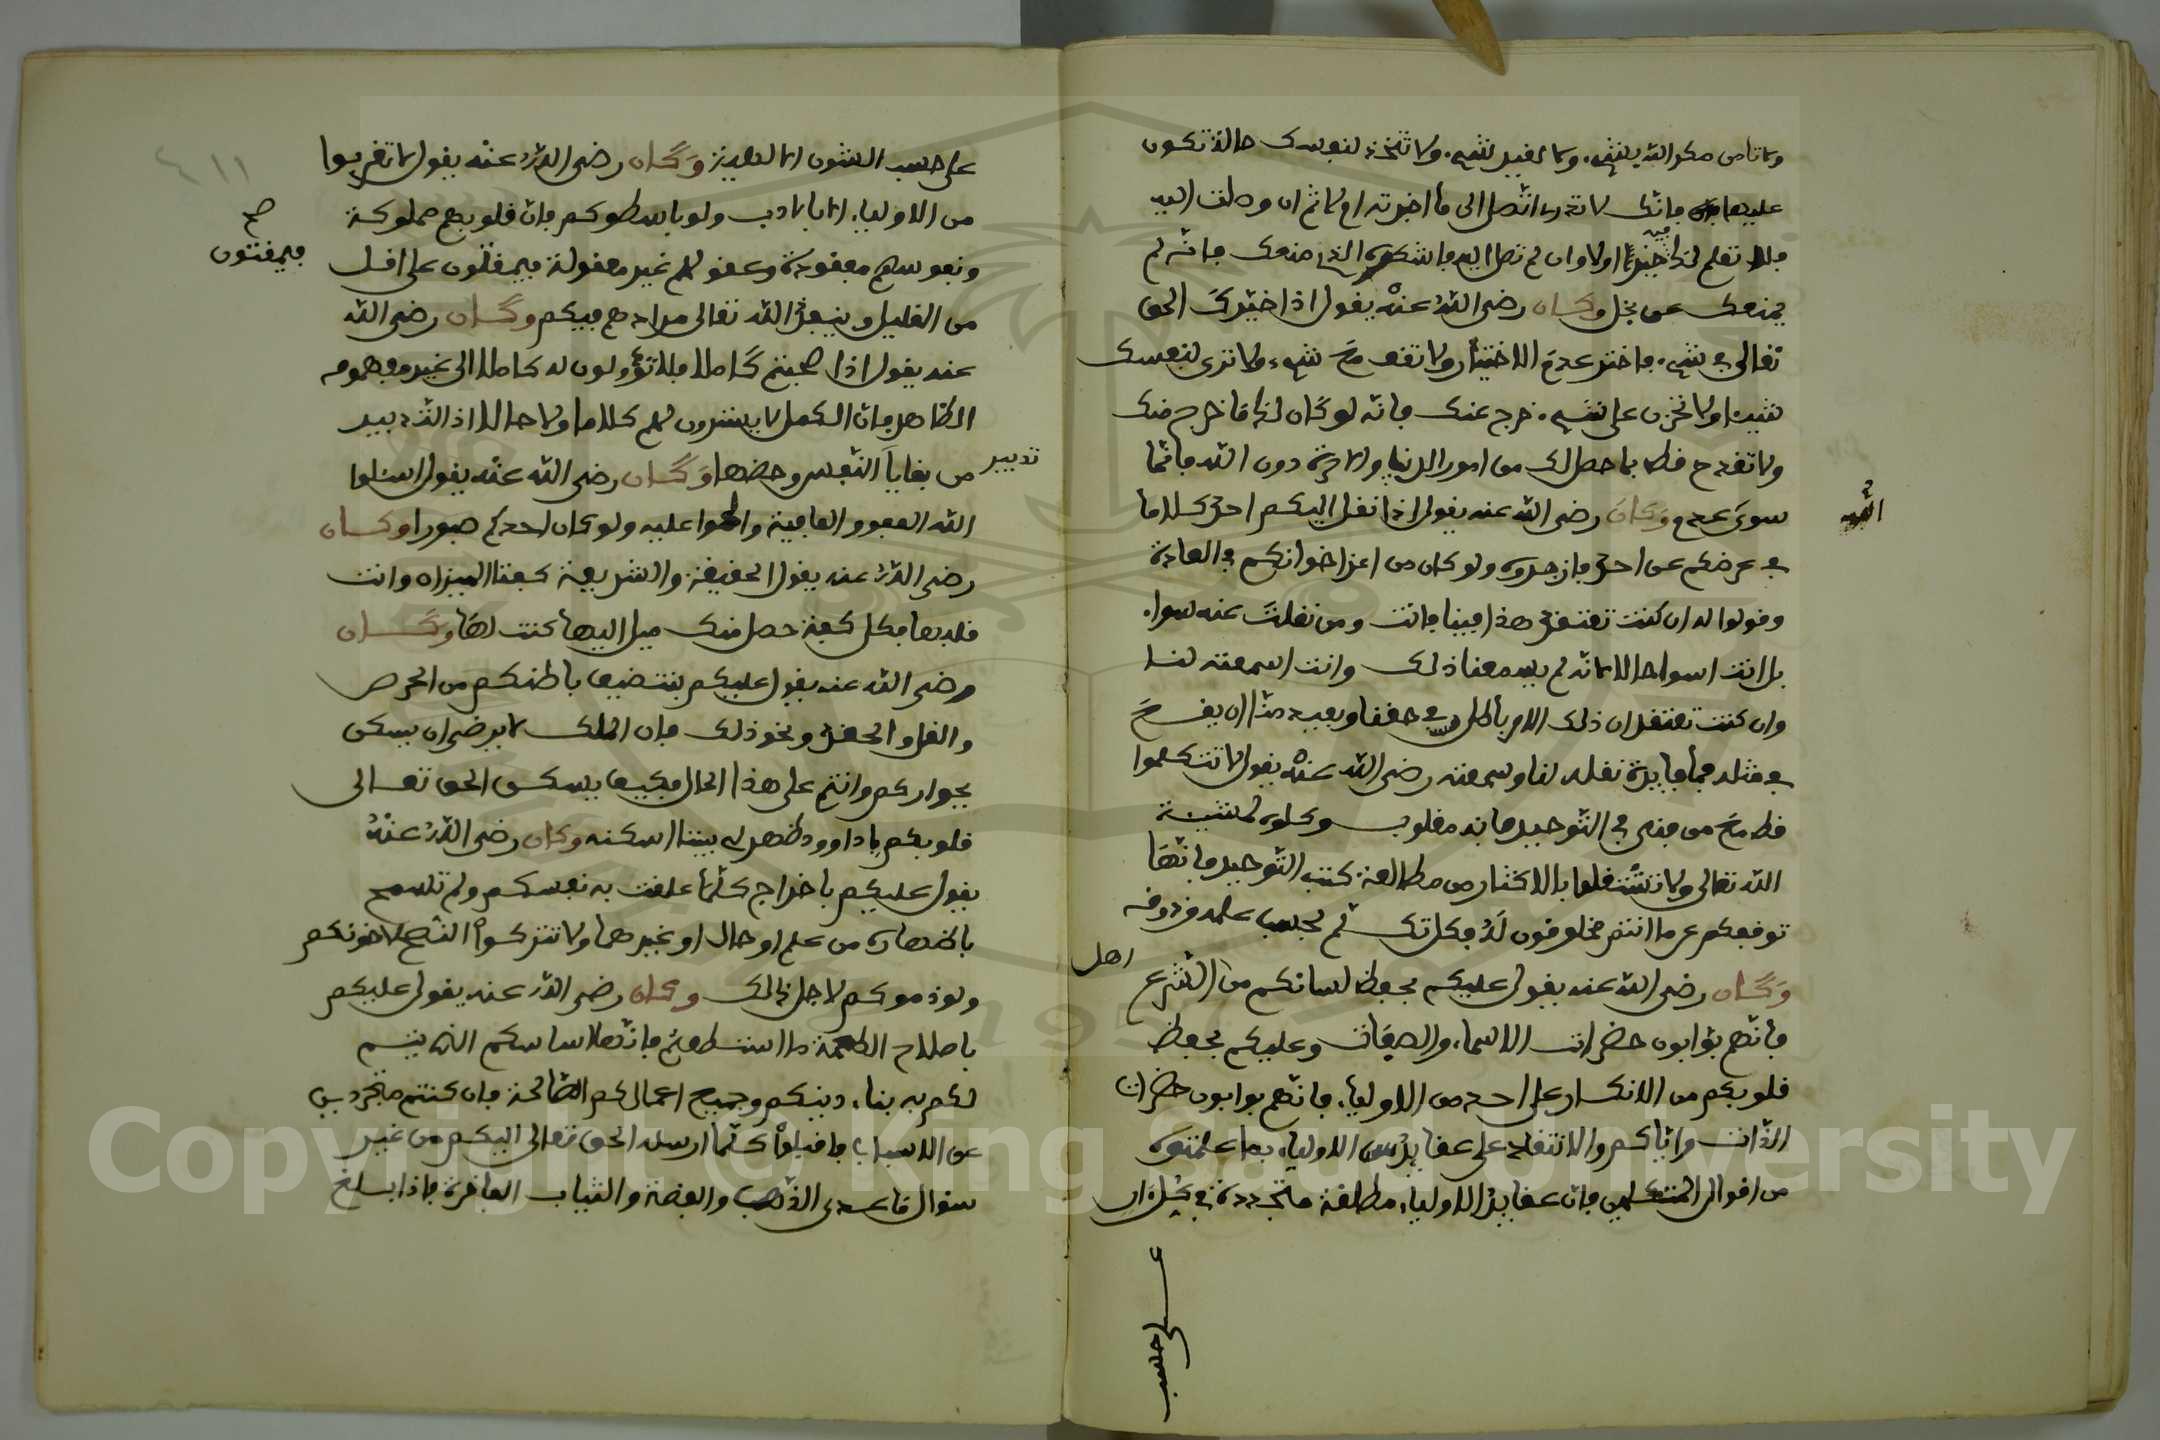 ولا تامن مكر الله لشيء. ولا لغير شيء. ولا تتخذ لنفسك حالة تكون
عليها فانك لا تدري اتصل الى ما اخترته ام لا ثم ان وصلت اليه
فلا تعلم لك فيه خير ام لا وان لم تصل اليه فاشكره الذي منعك فانه لم
يمنعك عن بخل وكان رضي الله عنه يقول اذا خيرك الحق
تعالى في شيء. فاختر عدم الاختيار ولا تقف مع شيء. ولا ترى لنفسك
شيئا ولا تحزن على شيء. خرج عنك فانه لو كان لك ما خرج منك
ولا تفرح قط بما حصل لك من امور الدنيا والاخرة دون الله فانما
سوى عدم وكان رضي الله عنه يقول اذا نقل اليكم احد كلاما
الله
في عرضكم عن احد فازجروه ولو كان من اعز اخوانكم في العادة
وقولوا له ان كنت تعتقد هذا فينا فانت ومن نقلت عنه سواء.
بل انت اسوا حالا لانه لم يسمعنا ذلك وانت اسمعته لنا
وان كنت تعتقد ان ذلك الامر باطل في حقنا وبعيد منا ان نقع
في مثله فما فايدة نقله لنا وسمعته رضي الله عنه يقول لا تتكلموا
قط مع من فني في التوحيد فانه مغلوب وكلوه لمشيئة
الله تعالى ولا تشتغلوا بالاكثار من مطالعة كتب التوحيد فانها
توقفكم عن ما انتم مخلوقون له فكل تكلم بحسب علمه وذوقه
وكان رضي الله عنه يقول عليكم بحفظ لسانكم من الشرع
اهل
فانهم بوابون حضرات الاسماء. والصفات وعليكم بحفظ
قلوبكم من الانكار على احد من الاولياء. فانهم بوابون حضرات
الذات واياكم والانتقاد على عقايد الاولياء. بما علمتوه
من اقوال المتكلمين فان عقايد الاولياء. مطلقة متجددة في كل ان
على حسب
على حسب الشئون الالهية وكان رضي الله عنه يقول لا تقربوا
من الاولياء. الا بالادب ولو باسطوكم فان قلوبهم مملوكة
ونفوسهم مفقودة وعقولهم غير معقولة فيمقتون على اقل
صح
فيمقتون
من القليل وينفذ الله تعالى مرادهم فيكم وكان رضي الله
عنه يقول اذا صحبتم كاملا فلا تؤولون له كاملا الى غير مفهومه
الظاهر فان الكمل لا يسترون لهم كلاما ولا حالا اذ التدبير
تدبير
من بقايا النفس وحضها وكان رضي الله عنه يقول اسئلوا
الله العفو والعافية والحوا عليه ولو كان احدكم صبورا وكان
رضي الله عنه يقول الحقيقة والشريعة كفتا الميزان وانت
قلبها فكل كفة حصل منك ميل اليها كنت لها وكان
رضي الله عنه يقول عليكم بتنضيف باطنكم من الحرص
والغل والحقد ونحو ذلك فان الملك لا يرضى ان يسكن
بجواركم وانتم على هذا الحال فكيف يسكن الحق تعالى
قلوبكم يا داوود طهر لي بيتا اسكنه وكان رضي الله عنه
يقول عليكم باخراج كلما علقت به نفسكم ولم تسمح
باظهاره من علم او حال او غيرهما ولا تتركوا النصح لاخوانكم
ولو ذموكم لاجل ذالك وكان رضي الله عنه يقول عليكم
باصلاح الطعمة ما استطعتم فانها اساسكم الذي يتم
لكم به بناء. دينكم وجميع اعمالكم الصالحة فان كنتم متجردين
عن الاسباب فاقبلوا كلما ارسله الحق تعالى اليكم من غير
سؤال ما عدى الذهب والفضة والثياب الفاخرة فاذا بلغ
٤١١
Copyright © King Saud University
1957